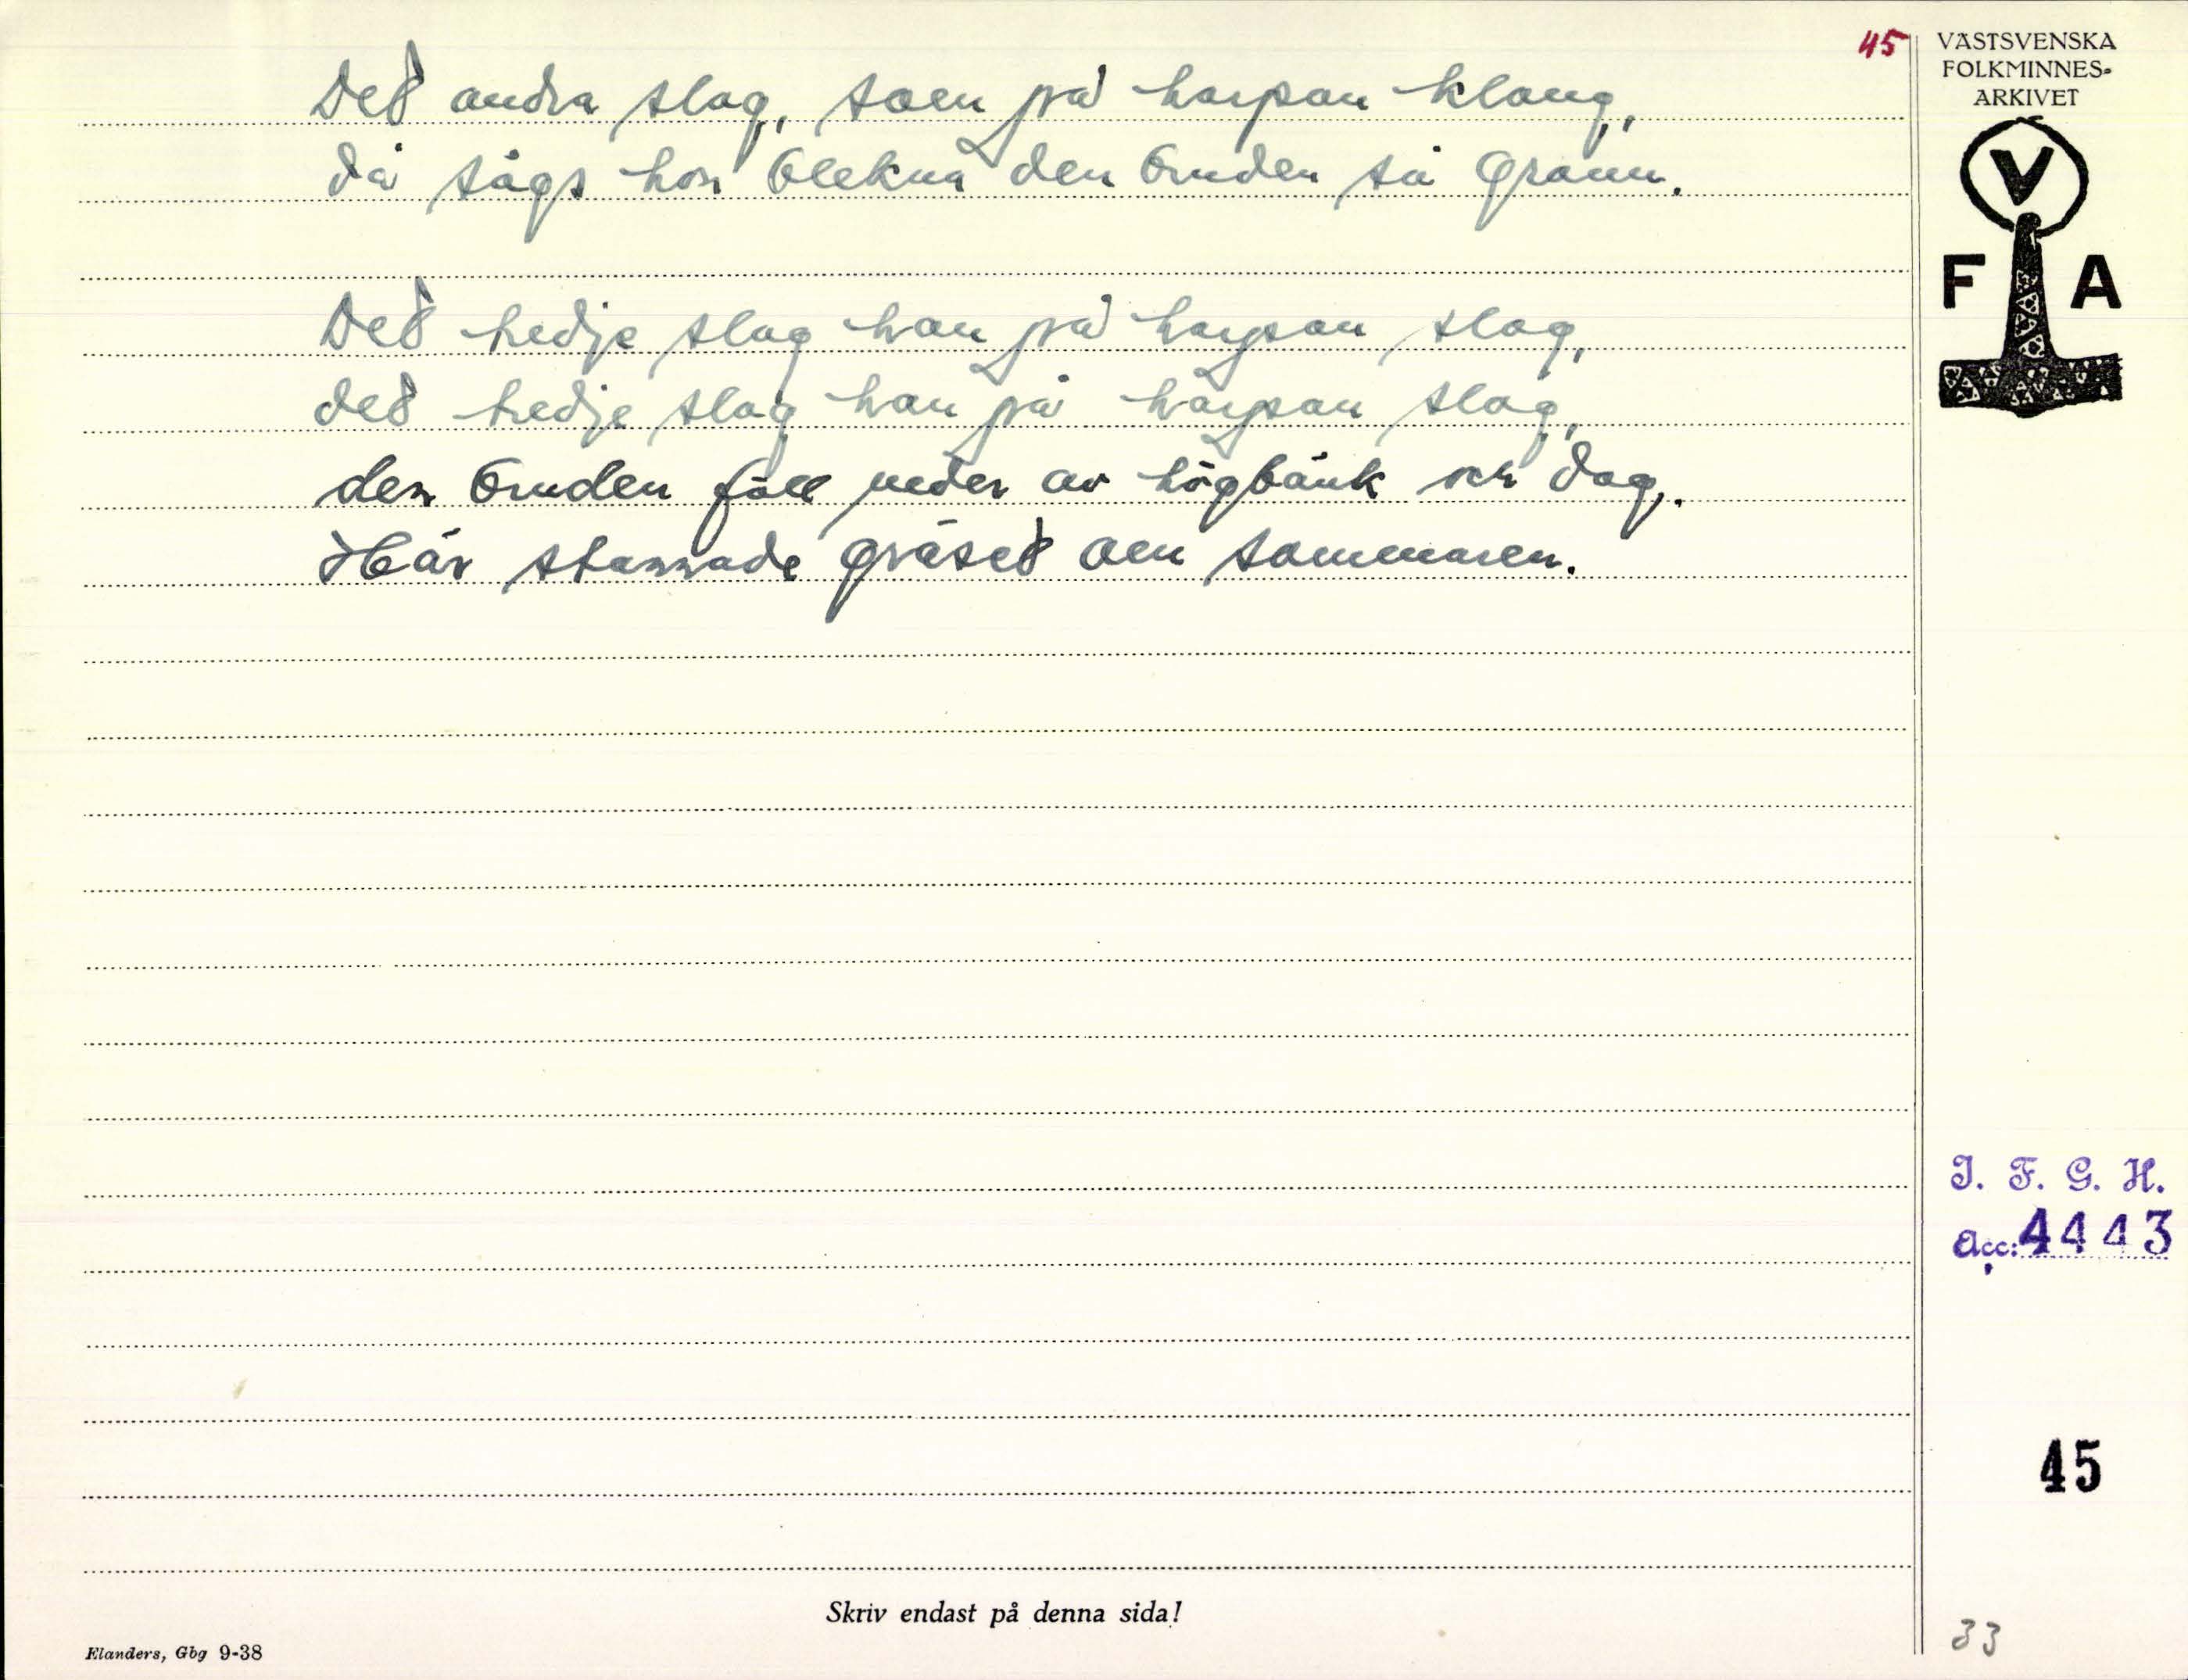 45
VÄSTSVENSKA
FOLKMINNES-
ARKIVET
V
F A
Det andra slag, som på harpan klang,
då sågs hon blekna den bruden så grann.
Det tredje slag han på harpan slog,
det tredje slag han på harpan slog,
den bruden föll neder av högbänk och dog.
Här stannade gräset om sommaren.
I. F. G. H.
Acc: 4443
45
33
Skriv endast på denna sida!
Elanders, Gbg 9-38